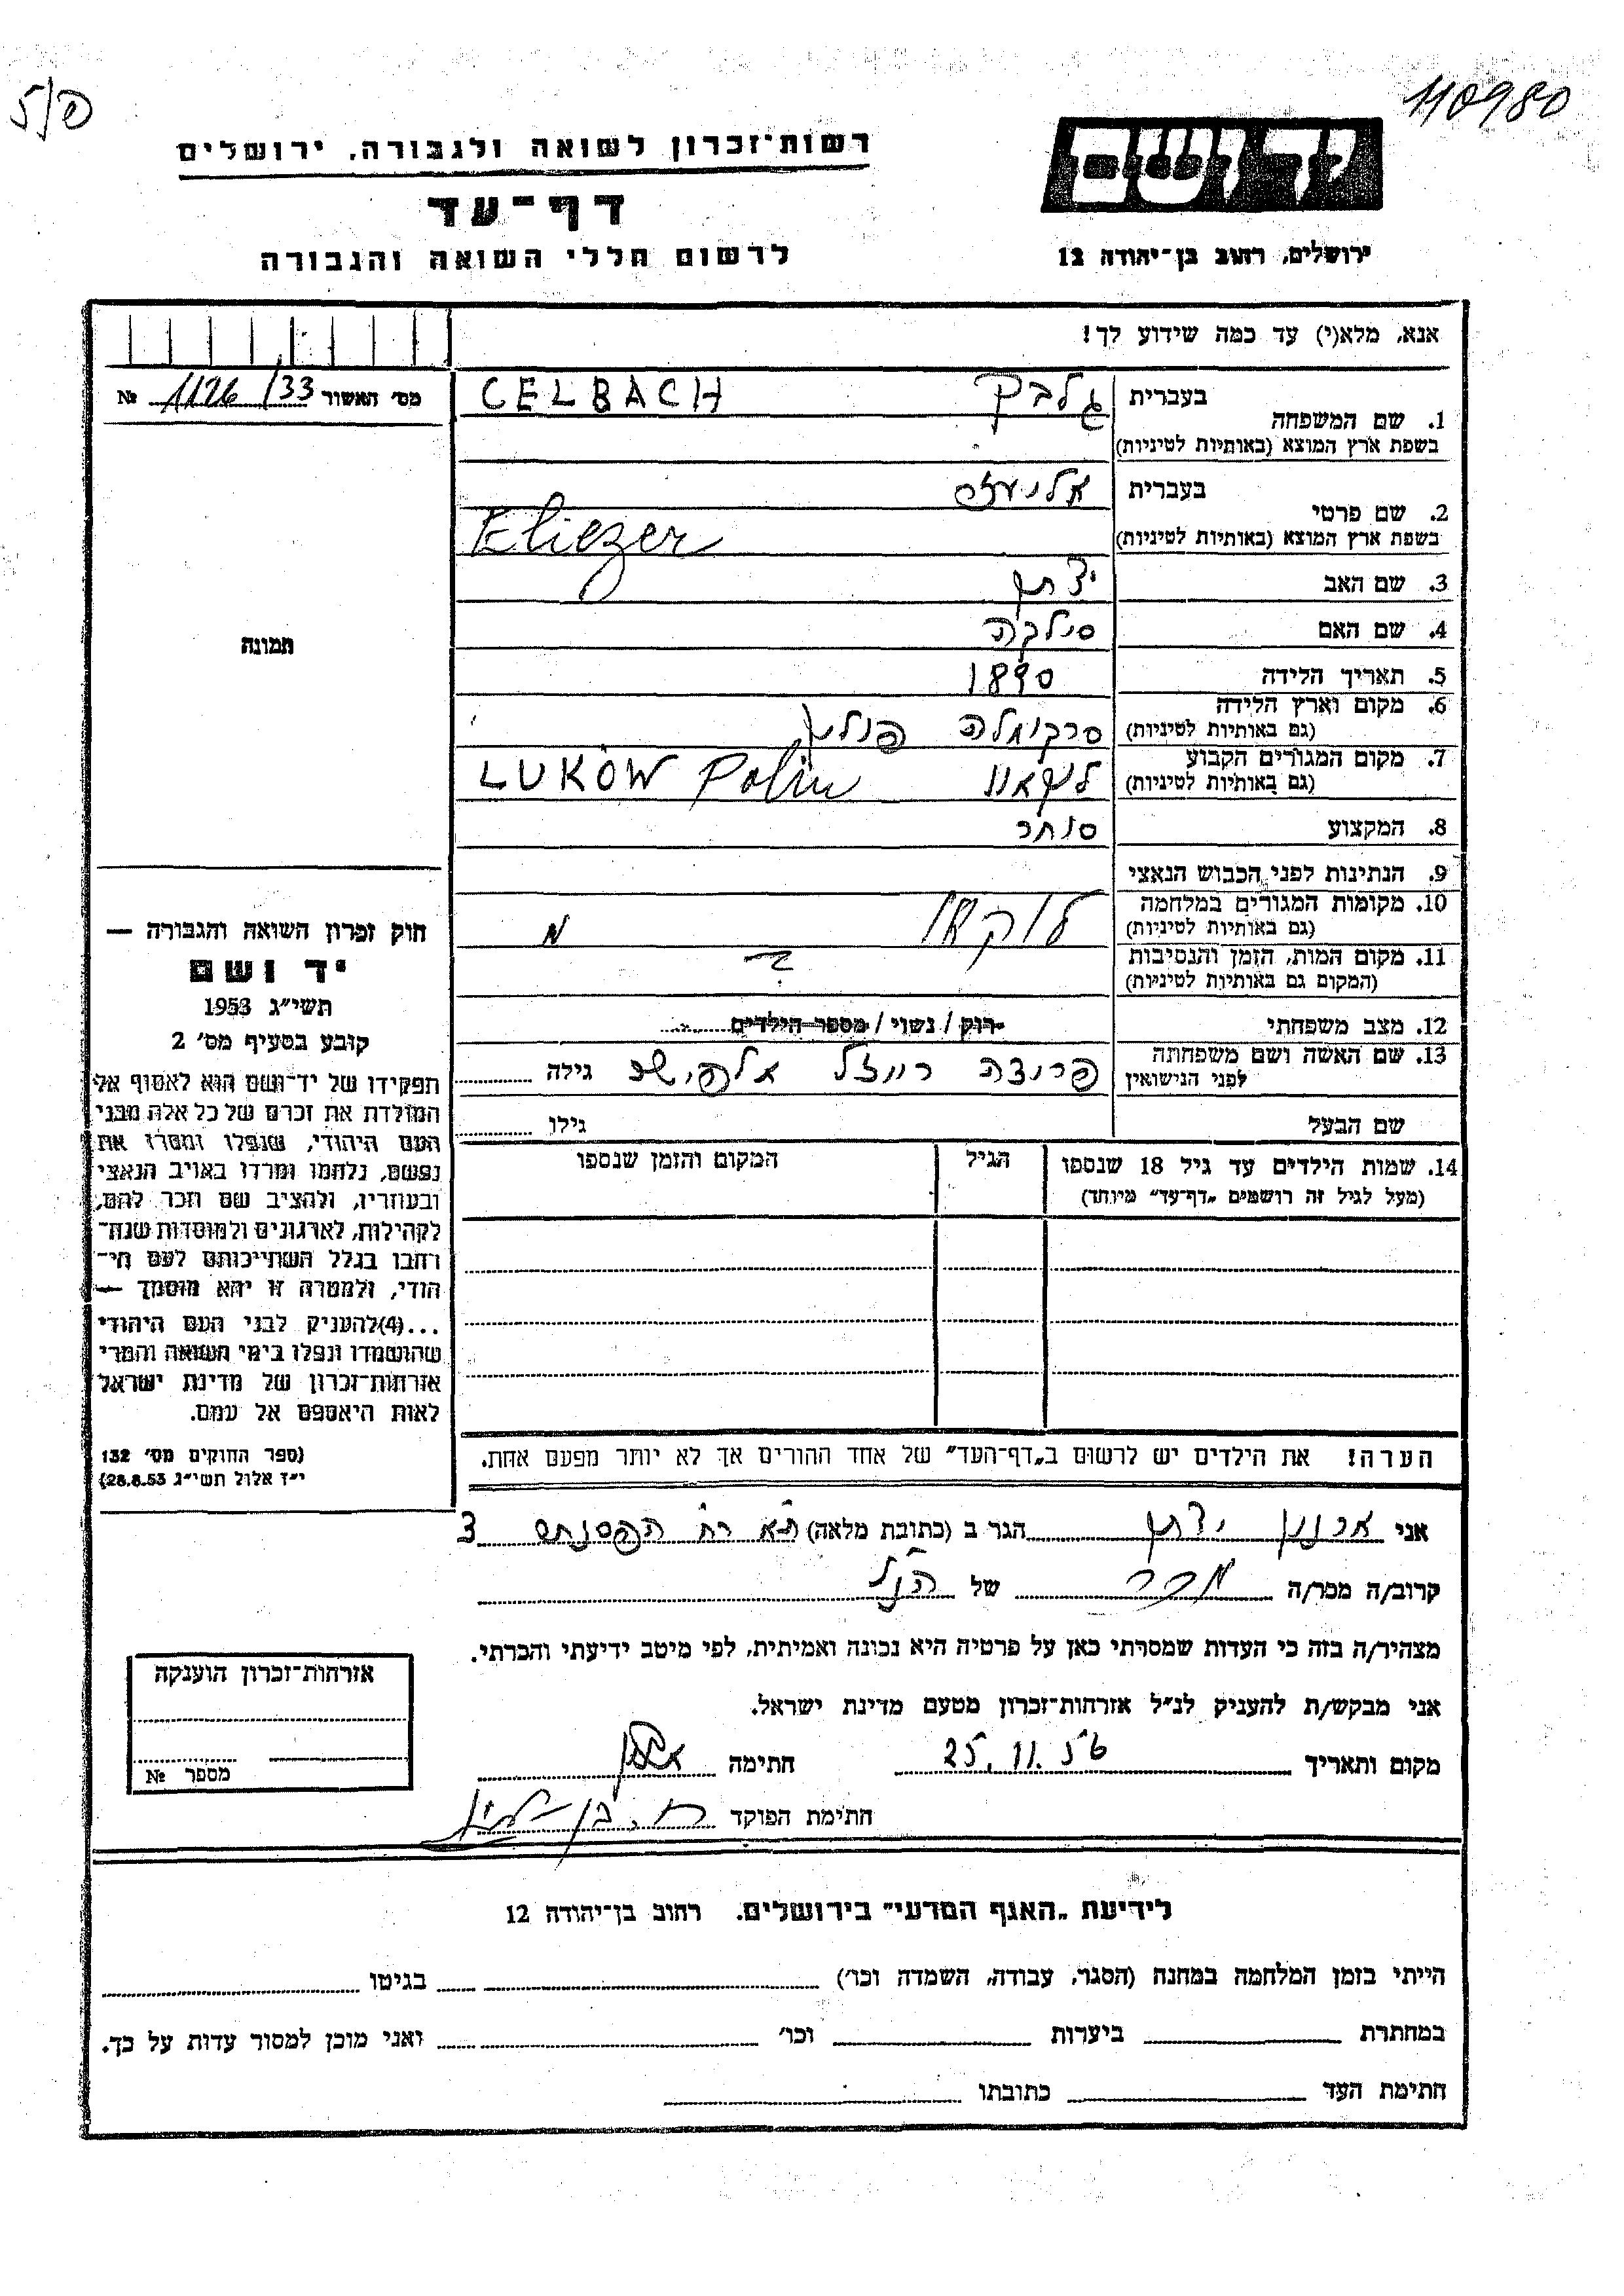 110980
5/פ
רשות־זכרון לשואה ולגבורה, ירושלים
דף־עד
לרשום חללי השואה והגבורה
יד ושם
ירושלים, רחוב בן־יהודה 12
אנא, מלא(י) עד כמה שידוע לך!
מס׳ האשור 1126/33 №
1. שם המשפחה
בעברית גלבך CELBACH
בשפת ארץ המוצא (באותיות לטיניות)
2. שם פרטי
בעברית אליעזר
בשפת ארץ המוצא (באותיות לטיניות) Eliezer
3. שם האב יצחק
4. שם האם
5. תאריך הלידה 1890
6. מקום וארץ הלידה
(גם באותיות לטיניות) סרקומלה פולין
7. מקום המגורים הקבוע
(גם באותיות לטיניות) לוקאוו LUKÓW Polin
8. המקצוע סוחר
9. הנתינות לפני הכבוש הנאצי
10. מקומות המגורים במלחמה
(גם באותיות לטיניות) לוקאוו
11. מקום המות, הזמן והנסיבות
(המקום גם באותיות לטיניות)
12. מצב משפחתי רוק / נשוי / מספר הילדים
13. שם האשה ושם משפחתה
לפני הנישואין פרומה רייזל גילה
שם הבעל גילו
14. שמות הילדים עד גיל 18 שנספו הגיל המקום והזמן שנספו
(מעל לגיל זה רושמים „דף־עד״ מיוחד)
הערה! את הילדים יש לרשום ב„דף־העד״ של אחד ההורים אך לא יותר מפעם אחת.
תמונה
חוק זכרון השואה והגבורה —
יד ושם
תשי״ג 1953
קובע בסעיף מס׳ 2
תפקידו של יד־ושם הוא לאסוף אל
המולדת את זכרם של כל אלה מבני
העם היהודי, שנפלו ומסרו את
נפשם, נלחמו ומרדו באויב הנאצי
ובעוזריו, ולהציב שם וזכר להם,
לקהילות, לארגונים ולמוסדות שנח־
רבו בגלל השתייכותם לעם הי־
הודי, ולמטרה זו יהא מוסמך —
...(4)להעניק לבני העם היהודי
שהושמדו ונפלו בימי השואה והמרי
אזרחות־זכרון של מדינת ישראל
לאות היאספם אל עמם.
(ספר החוקים מס׳ 132
י״ז אלול תשי״ג 28.8.53)
אני ארנון יצחק הגר ב (כתובת מלאה) ת״א רח׳
קרוב/ה מכר/ה מכר של הנ״ל
מצהיר/ה בזה כי העדות שמסרתי כאן על פרטיה היא נכונה ואמיתית, לפי מיטב ידיעתי והכרתי.
אני מבקש/ת להעניק לנ״ל אזרחות־זכרון מטעם מדינת ישראל.
מקום ותאריך 25.11.56 חתימה
חתימת הפוקד
אזרחות־זכרון הוענקה
מספר №
לידיעת „האגף המדעי״ בירושלים. רחוב בן־יהודה 12
הייתי בזמן המלחמה במחנה (הסגר, עבודה, השמדה וכו׳) בגיטו
במחתרת ביערות וכו׳ ואני מוכן למסור עדות על כך.
חתימת העד כתובתו